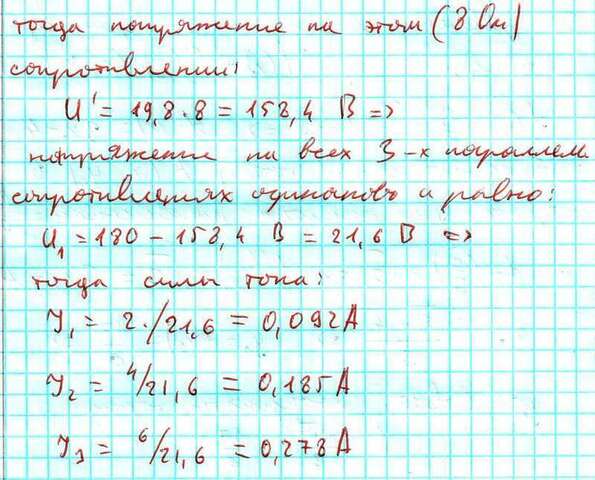 тогда напряжение на этом (8 Ом)
сопротивлении:
U' = 19,8 · 8 = 158,4 В =>
напряжение на всех 3-х параллел.
сопротивлениях одинаково и равно:
U₁ = 180 − 158,4 В = 21,6 В =>
тогда силы тока:
I₁ = 2/21,6 = 0,092 А
I₂ = 4/21,6 = 0,185 А
I₃ = 6/21,6 = 0,278 А